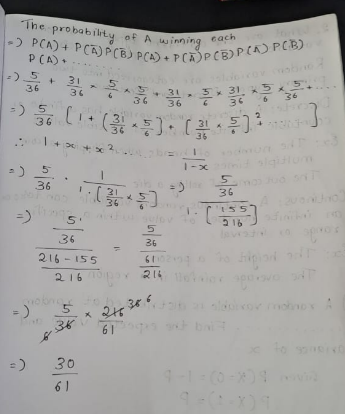 The probability of A winning each
=) P(A) + P(Ā) P(B̄) P(A) + P(Ā) P(B̄) P(Ā) P(B̄)
P(A) + ......
=) 5/36 + 31/36 × 5/6 × 5/36 + 31/36 × 5/6 × 31/36 × 5/6 × 5/36 + ...
=) 5/36 [1 + (31/36 × 5/6) + [31/36 × 5/6]² + ......]
∴ 1 + x + x² = 1/1-x
=) 5/36 . 1/1 . [31/36 × 5/6] =) 5/36 / 1 . [155/216]
=) 5/36 / 216-155/216 = 5/36 / 61/216
=) 5/36 6 × 216 36 6/61
=) 30/61